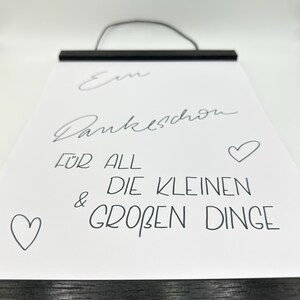 Ein
Dankeschön
FÜR ALL
DIE KLEINEN
& GROßEN DINGE